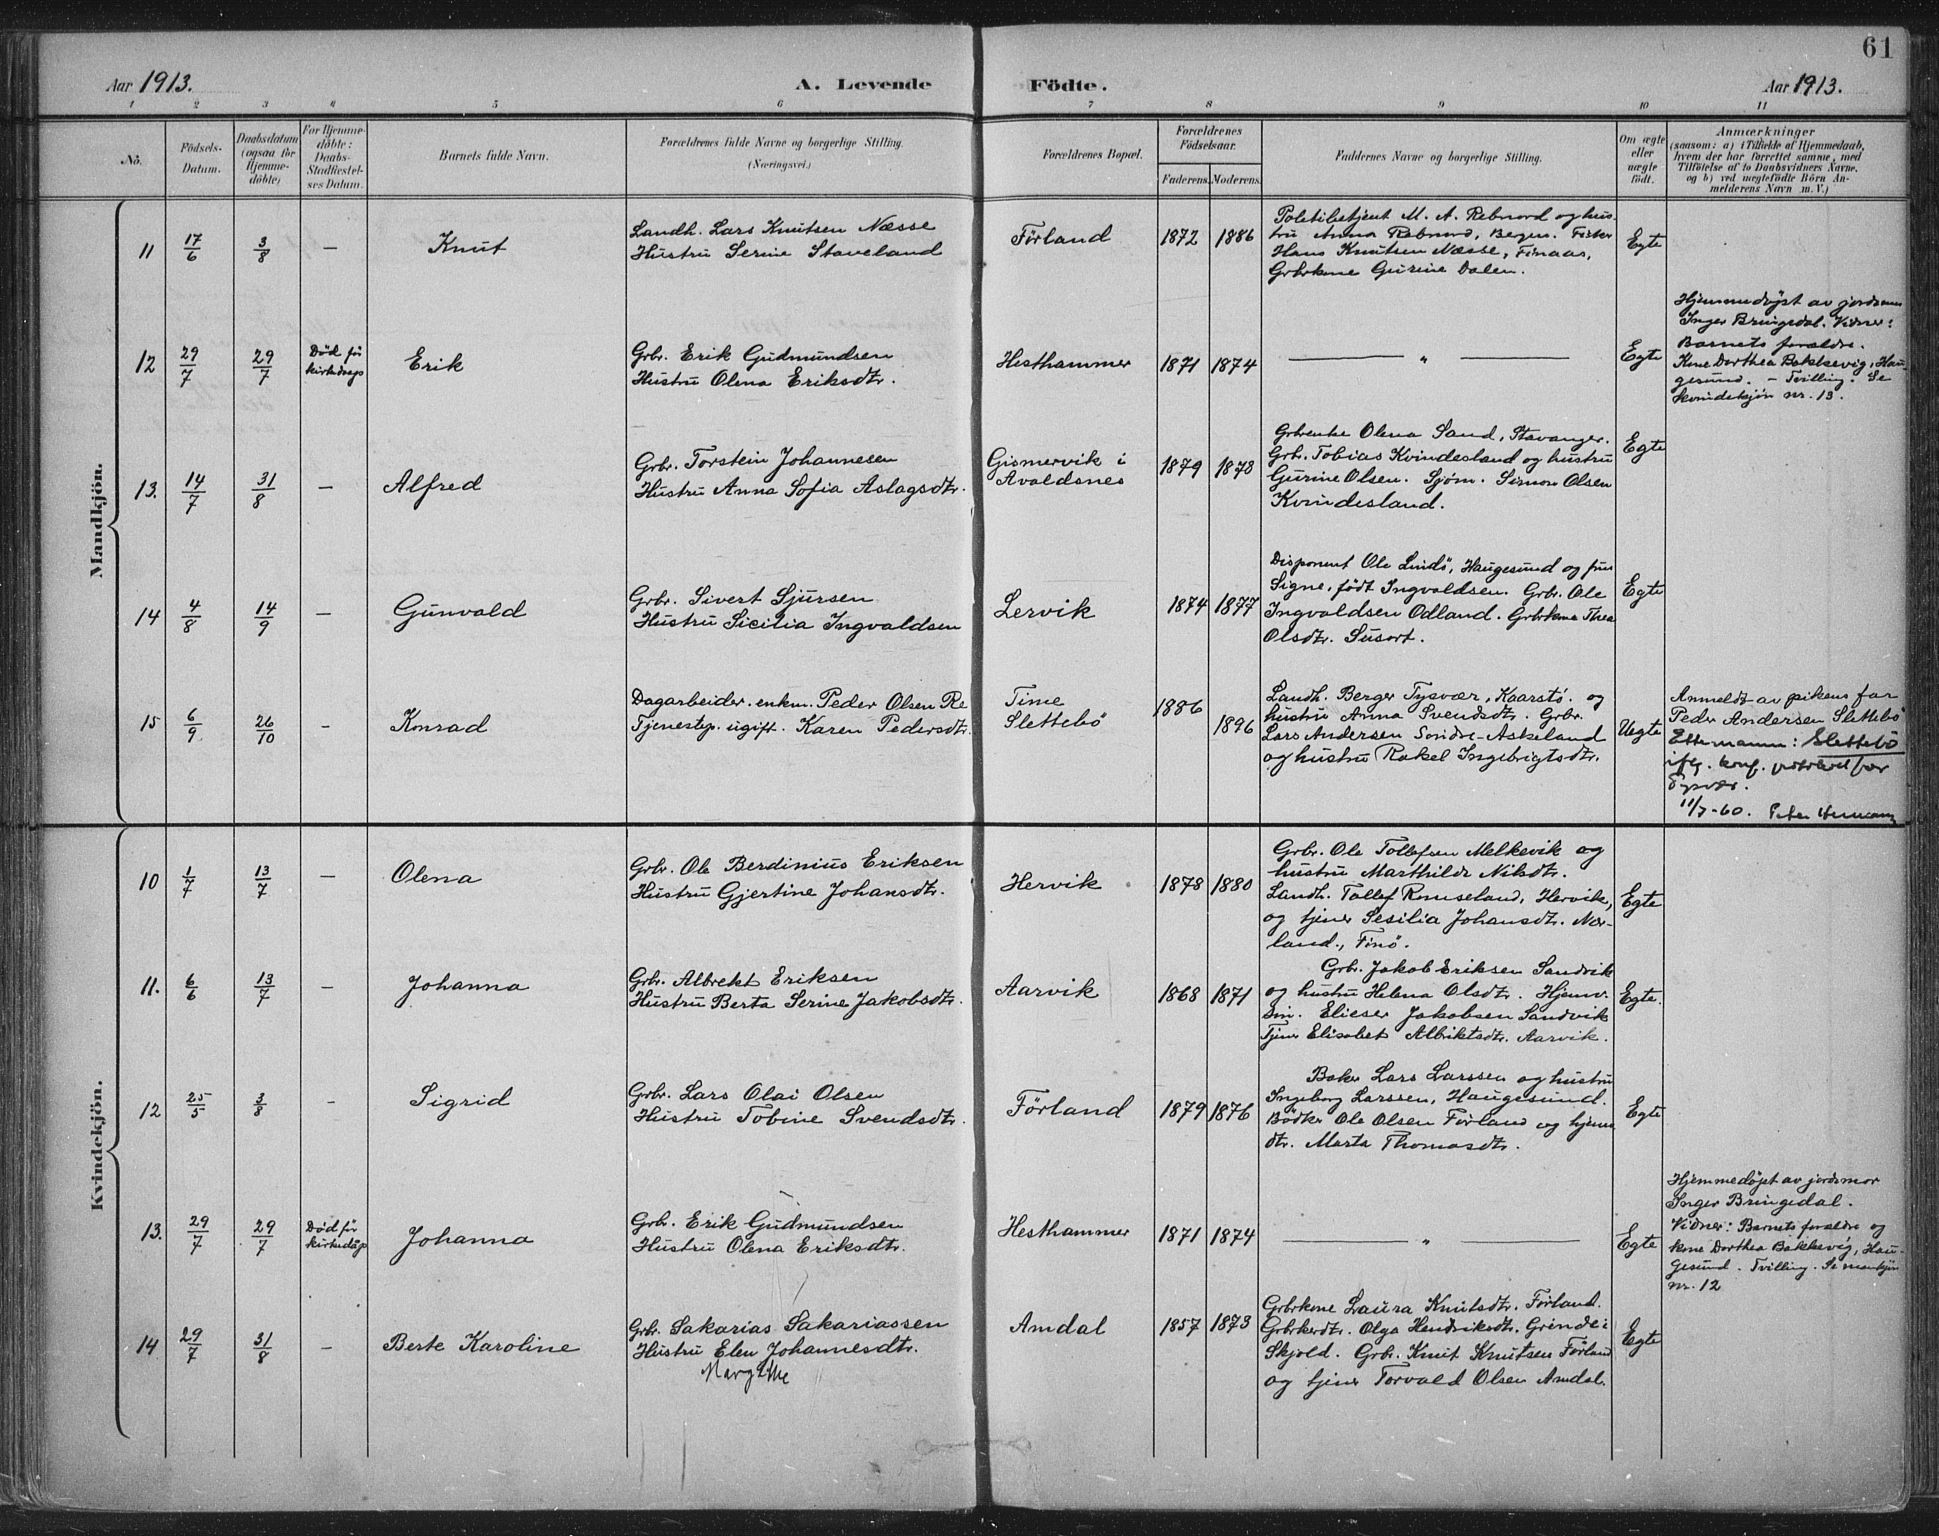 61
Aar 1913. A. Levende Födte. Aar 1913.
1 2 3 4 5 6 7 8 9 10 11
No. Födsels-Datum. Daabsdatum (ogsaa för Hjemme-döbte) For Hjemme-döbte: Daabs-Stadfæstel-ses Datum. Barnets fulde Navn. Forældrenes fulde Navne og borgerlige Stilling. (Næringsvei.) Forældrenes Bopæl. Forældrenes Födselsaar. Faderens. Moderens. Faddernes Navne og borgerlige Stilling. Om ægte eller uægte födt. Anmærkninger
(saasom: a) i Tilfælde af Hjemmedaab,
hvem der har forrettet samme, med
Tilföielse af to Daabsvidners Navne.
og b) ved uægtefödte Börn An-
melderens Navn m. V.)
Mandkjön.
11 17/6 3/8 — Knut
Landh. Lars Knutsen Næsse
Hustru Serine Staveland
Förland 1872 1886
Politibetjent M. A. Rebnord og hus-
tru Anna Rebnord, Bergen. Fisker
Hans Knutsen Næsse, Finaas,
Grbrkone Gurine Dalen.
Egte
12 29/7 29/7 Død før
kirkedaap
Erik
Grbr. Erik Gudmundsen
Hustru Olena Eriksdtr.
Hesthammer 1871 1874 — " — Egte
Hjemmedøpt av jordmor
Inger Bringedal. Vidner:
Barnets forældre.
Kone Dorthea Bakkevig, Hau-
gesund. – Tvilling. Se
kvindekjön nr. 13.
13. 14/7 31/8 — Alfred
Grbr. Torstein Johannesen
Hustru Anna Sofia Aslagsdtr.
Gismervik i
Avaldsnes
1879 1878
Grbrenke Olena Sand, Stavanger.
Grbr. Tobias Kvindesland og hustru
Gurine Olsen. Sjøm. Simon Olsen
Kvindesland.
Egte
14 4/8 14/9 — Gunvald
Grbr. Sivert Sjursen
Hustru Sicilia Ingvaldsen
Lervik 1874 1877
Disponent Ole Lindö, Haugesund og frue
Signe, født Ingvaldsen. Grbr. Ole
Ingvaldsen Odland. Grbrkone Thea
Olsdtr. Susort.
Egte
15 6/9 26/10 — Konrad
Dagarbeider enkm. Peder Olsen Re
Tjenestep. ugift. Karen Pedersdtr.
Time
Slettebö
1886
1896
Landh. Berger Tysvær, Kaarstö. og
hustru Anna Svendsdtr. Grbr.
Lars Andersen Söndre-Askeland
og hustru Rakel Ingebrigtsdtr.
Uegte
Anmeldt av pikens far
Peder Andersen Slettebö
Etternamn: Slettebö
ifg. konf. protokoll for
Tysvær.
11/7-60.
Kvindekjön.
10 1/7 13/7 — Olena
Grbr. Ole Berdinius Eriksen
Hustru Gjertine Johansdtr.
Hervik 1878 1880
Grbr. Ole Tollefsen Melkevik og
hustru Marthilde Nilsdtr.
Landh. Tollef Romseland, Hervik,
og tjener Sesilia Johansdtr. Nor-
land., Finö.
Egte
11. 6/6 13/7 — Johanna
Grbr. Albrekt Eriksen
Hustru Berta Serine Jakobsdtr.
Aarvik 1868 1871
Grbr. Jakob Eriksen Sandvik
og hustru Helena Olsdtr. Hjemv.
søn. Elieser Jakobsen Sandvik
Tjener Elisabet Albriktsdtr. Aarvik.
Egte.
12 25/5 3/8 — Sigrid
Grbr. Lars Olai Olsen
Hustru Tobine Svendsdtr.
Förland 1879 1876
Baker Lars Larssen og hustru
Ingeborg Larssen, Haugesund.
Bödker Ole Olsen Förland og hjemv.
dtr. Marta Thomasdtr.
Egte
13. 29/7 29/7 Død før
kirkedåp
Johanna
Grbr. Erik Gudmundsen
Hustru Olena Eriksdtr.
Hesthammer 1871 1874 — " — Egte
Hjemmedøpt av jordmor
Inger Bringedal.
Vidner: Barnets forældre og
kone Dorthea Bakkevig, Hau-
gesund. Tvilling. Se mankjön
nr. 12
14 29/7 31/8 — Berte Karoline
Grbr. Sakarias Sakariassen
Hustru Elen Johannesdtr.
Margrethe
Amdal 1857 1873
Grbrkone Laura Knutsdtr. Förland.
Grbrkerdtr. Olga Hendriksdtr. Grinde i
Skjold. Grbr. Knut Knutsen Förland
og tjener Torvald Olsen Amdal.
Egte